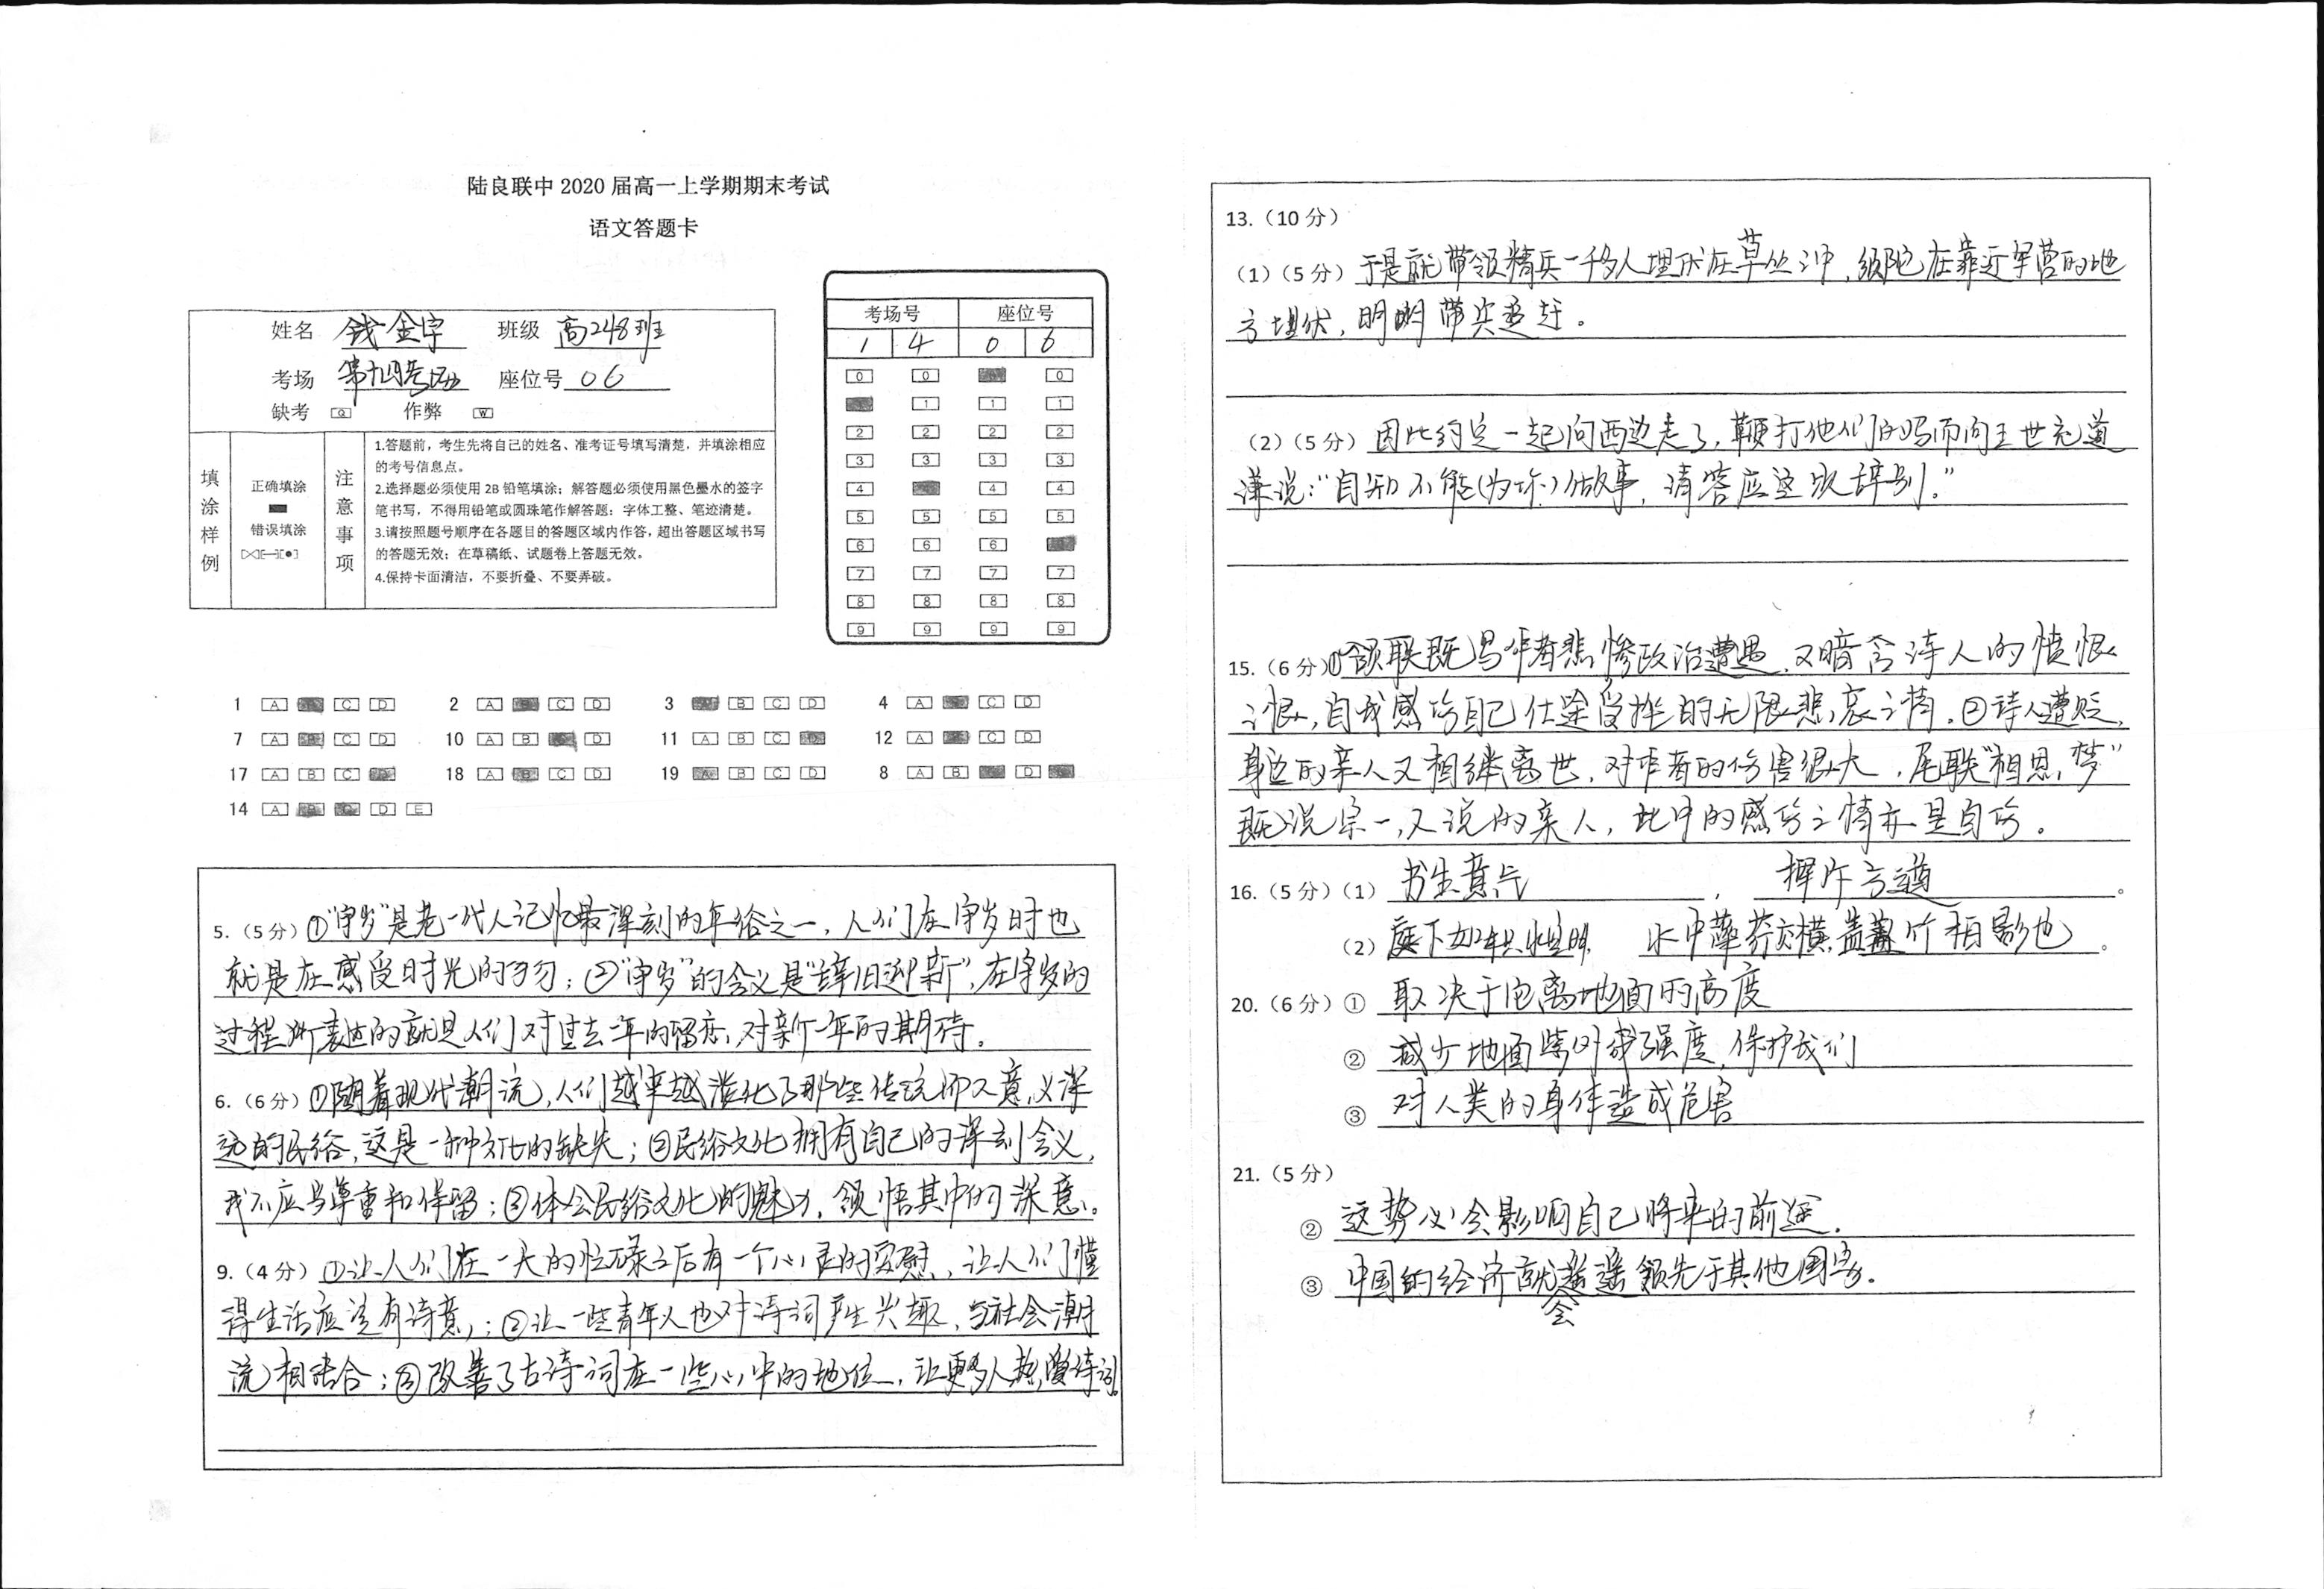 陆良联中 2020 届高一上学期期末考试
语文答题卡
姓名 钱金宇 班级 高248班
考场 第十四考场 座位号 06
缺考 [Q] 作弊 [W]
填涂样例
正确填涂
错误填涂
注意事项
1.答题前，考生先将自己的姓名、准考证号填写清楚，并填涂相应
的考号信息点。
2.选择题必须使用 2B 铅笔填涂；解答题必须使用黑色墨水的签字
笔书写，不得用铅笔或圆珠笔作解答题：字体工整、笔迹清楚。
3.请按照题号顺序在各题目的答题区域内作答，超出答题区域书写
的答题无效；在草稿纸、试题卷上答题无效。
4.保持卡面清洁，不要折叠、不要弄破。
考场号 座位号
1 4 0 6
0 0 0
1 1 1
2 2 2 2
3 3 3 3
4 4 4
5 5 5 5
6 6 6
7 7 7 7
8 8 8 8
9 9 9 9
1 A C D 2 A C D 3 B C D 4 A C D
7 A B C D 10 A B D 11 A B C D 12 A C D
17 A B C 18 A B C D 19 A B C D 8 A B D
14 A B C D E
5.（5分）①“守岁”是老一代人记忆最深刻的年俗之一，人们在守岁时也
就是在感受时光的；②“守岁”的含义是“辞旧迎新”，在守岁的
过程所表达的就是人们对过去一年的留恋，对新一年的期待。
6.（6分）①随着现代潮流，人们越来越淡化了那些传统而又意义深
远的民俗，这是一种文化的缺失；②民俗文化拥有自己的深刻含义，
我们应当尊重和保留；③体会民俗文化的魅力，领悟其中的深意。
9.（4分）①让人们在一天的忙碌之后有一个心灵的安慰，让人们懂
得生活应该有诗意；②让一些青年人也对诗词产生兴趣，与社会潮
流相结合；③改善了古诗词在一些心中的地位，让更多人热爱诗词。
13.（10 分）
（1）（5 分）于是就带领精兵一千多人埋伏在草丛之中，须陀在靠近军营的地
方埋伏，明朗带兵追赶。
（2）（5 分）因此约定一起向西边走了，鞭打他们的吗而向王世充道
谦说：“自知不能（为你）做事，请答应这次辞别。”
15.（6 分）①颔联既写作者悲惨政治遭遇，又暗含诗人的愤恨
之恨，自我感伤自己仕途受挫的无限悲哀之情。②诗人遭贬，
身边的亲人又相继离世，对作者的伤害很大，尾联“相思，梦”
既说宗一，又说的亲人，此中的感伤之情亦是自伤。
16.（5 分）（1）书生意气， 挥斥方遒。
（2）庭下如积水空明， 水中藻荇交横，盖竹柏影也。
20.（6 分）① 取决于它离地面的高度
② 减少地面紫外线强度，保护我们
③ 对人类的身体造成危害
21.（5 分）
② 这势必会影响自己将来的前途．
③ 中国的经济就会遥遥领先于其他国家．